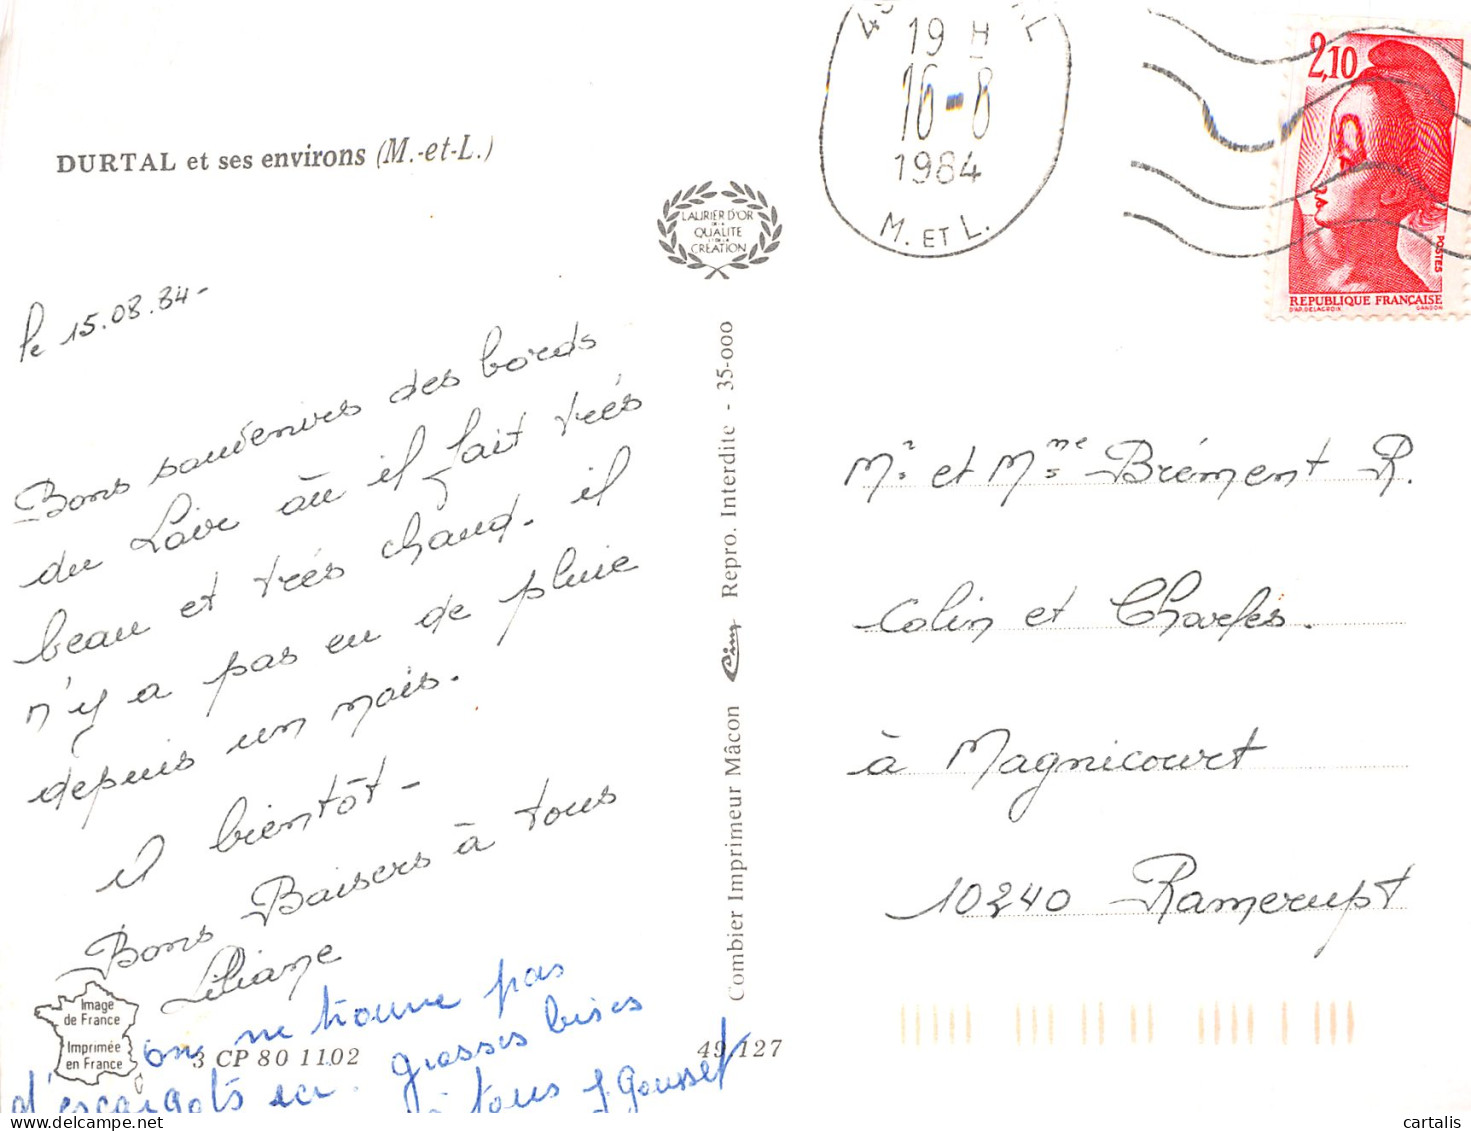 DURTAL et ses environs (M.-et-L.)
le 15.08.84-
Bons souvenirs des bords
du Loir où il fait très
beau et très chaud. il
n'y a pas eu de pluie
depuis un mois.
à bientôt -
Bons Baisers à tous
Liliane
on ne trouve pas
d'escargots ici. grosses bises
à tous J Gousset
Image
de France
Imprimée
en France
3 CP 80 1102
49/127
LAURIER D'OR
DE LA
QUALITE
ET DE LA
CREATION
Combier Imprimeur Mâcon Cim Repro. Interdite - 35-000
19 H
16-8
1984
M. ET L.
2,10
POSTES
REPUBLIQUE FRANÇAISE
D'AP. DELACROIX GANDON
Mr et Mme Brément R.
Colin et Charles.
à Magnicourt
10240 Ramerupt
cartalis